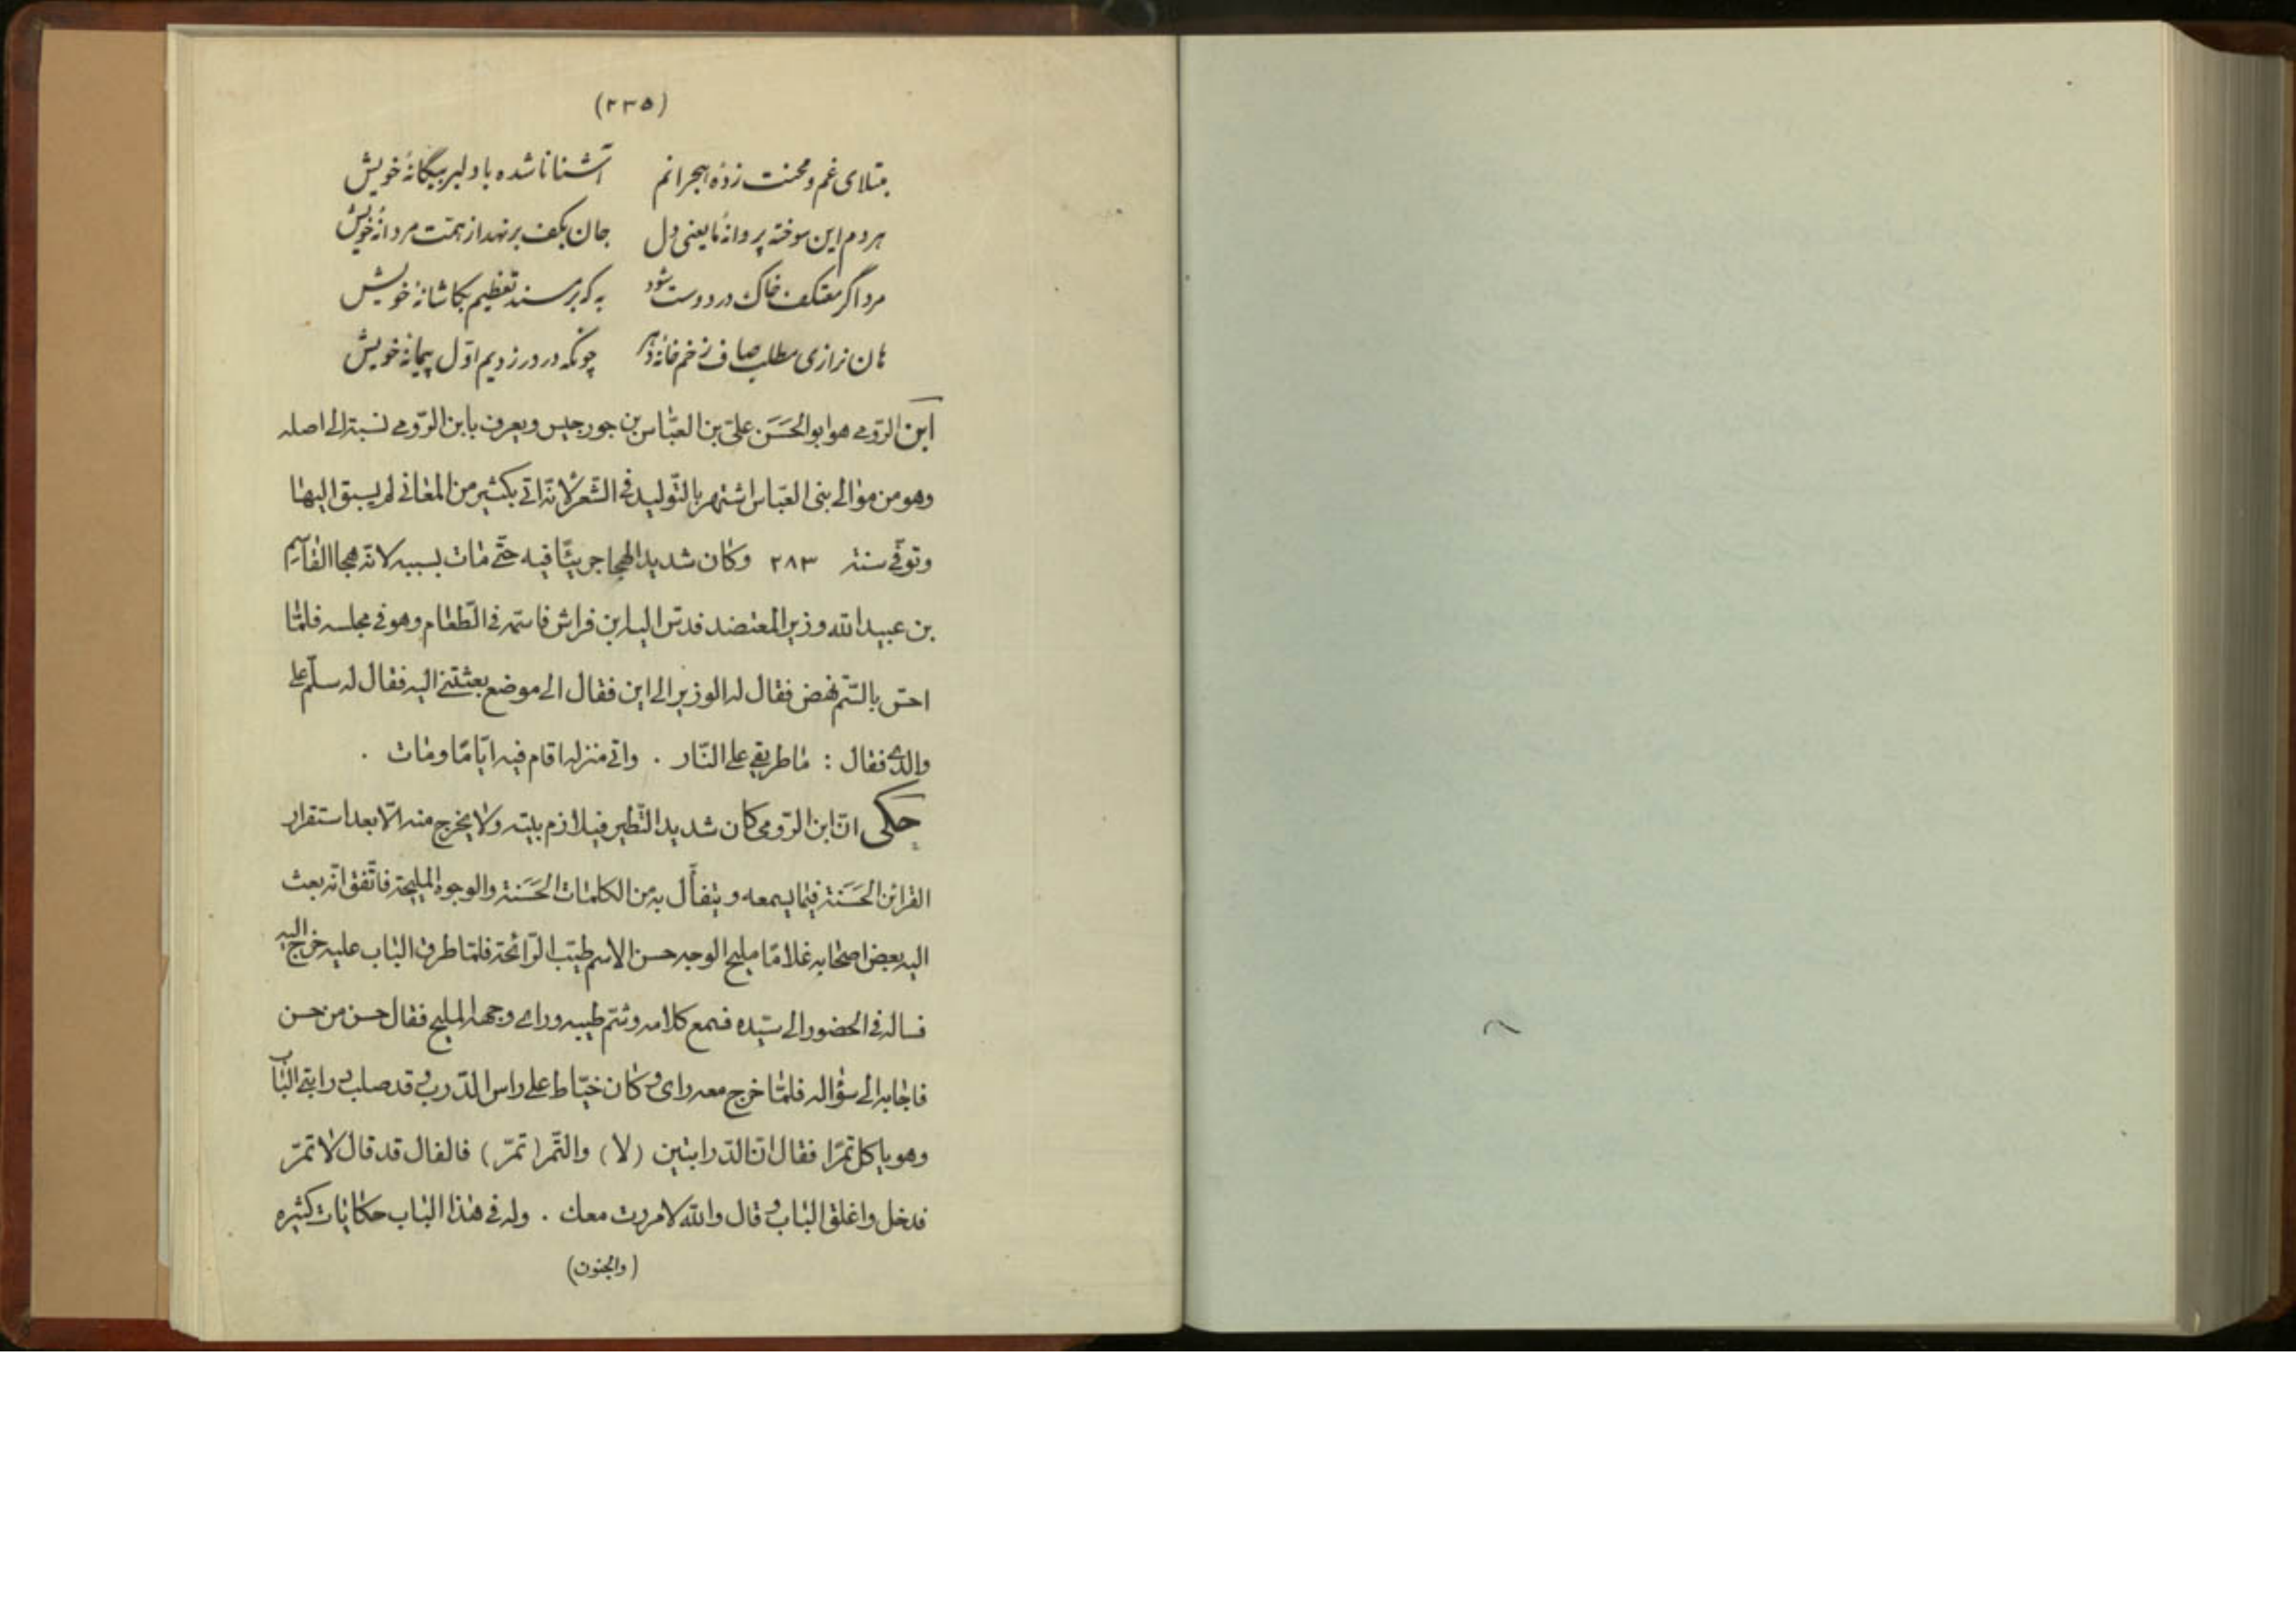 (۲۳۵)
مبتلای غم و محنت زدهٔ هجرانم آشنا ناشده با دلبر بیگانهٔ خویش
هر دم این سوخته پروانهٔ ما یعنی دل جان بکف بر نهد از همت مردانهٔ خویش
مرد اگر معتکف خاک در دوست شود به که برسند تعظیم بکاشانهٔ خویش
هان نرازی مطلب صاف ز خم خانهٔ دهر چونکه دردر زدیم اوّل پیمانهٔ خویش
ابن الرّومی هو ابو الحَسَن علیّ بن العبّاس بن جورجیس ویعرف بابن الرّومی نسبة الی اصله
وهو من موالی بنی العبّاس اشتهر بالتّولید فی الشّعر لانّه اتی بکثیر من المعانی لم یسبق الیها
وتوفّی سنة ۲۸۳ وکان شدید الهجا جریئًا فیه حتّی مات بسببه لانّه هجا القاسم
بن عبید الله وزیر المعتضد فدسّ الیه ابن فراش فاسمّه فی الطّعام وهو فی مجلسه فلمّا
احسّ بالسّم نهض فقال له الوزیر الی این فقال الی موضع بعثتنی الیه فقال له سلّم علی
والدی فقال : ما طریقی علی النّار . واتی منزله اقام فیه ایّامًا ومات .
حکی انّ ابن الرّومی کان شدید التّطیر فیلازم بیته ولا یخرج منه الّا بعد استقرار
القرائن الحَسَنة فیما یسمعه و یتفأّل به من الکلمات الحَسَنة والوجوه الملیحة فاتّفق انّه بعث
الیه بعض اصحابه غلامًا ملیح الوجه حسن الاسم طیّب الرّائحة فلمّا طرق الباب علیه خرج الیه
فساله فی الحضور الی سیّده فسمع کلامه وشمّ طیبه ورای وجهه الملیح فقال حسن من حسن
فاجابه الی سؤاله فلمّا خرج معه رای و کان خیّاط علی راس الدّرب و قد صلب درابتی الباب
وهو یاکل تمرًا فقال انّ الدّرابتین (لا) والتّمر (تمرّ) فالفال قد قال لا تمرّ
فدخل واغلق الباب و قال والله لا مررت معک . وله فی هذا الباب حکایات کثیره
(والجنون)